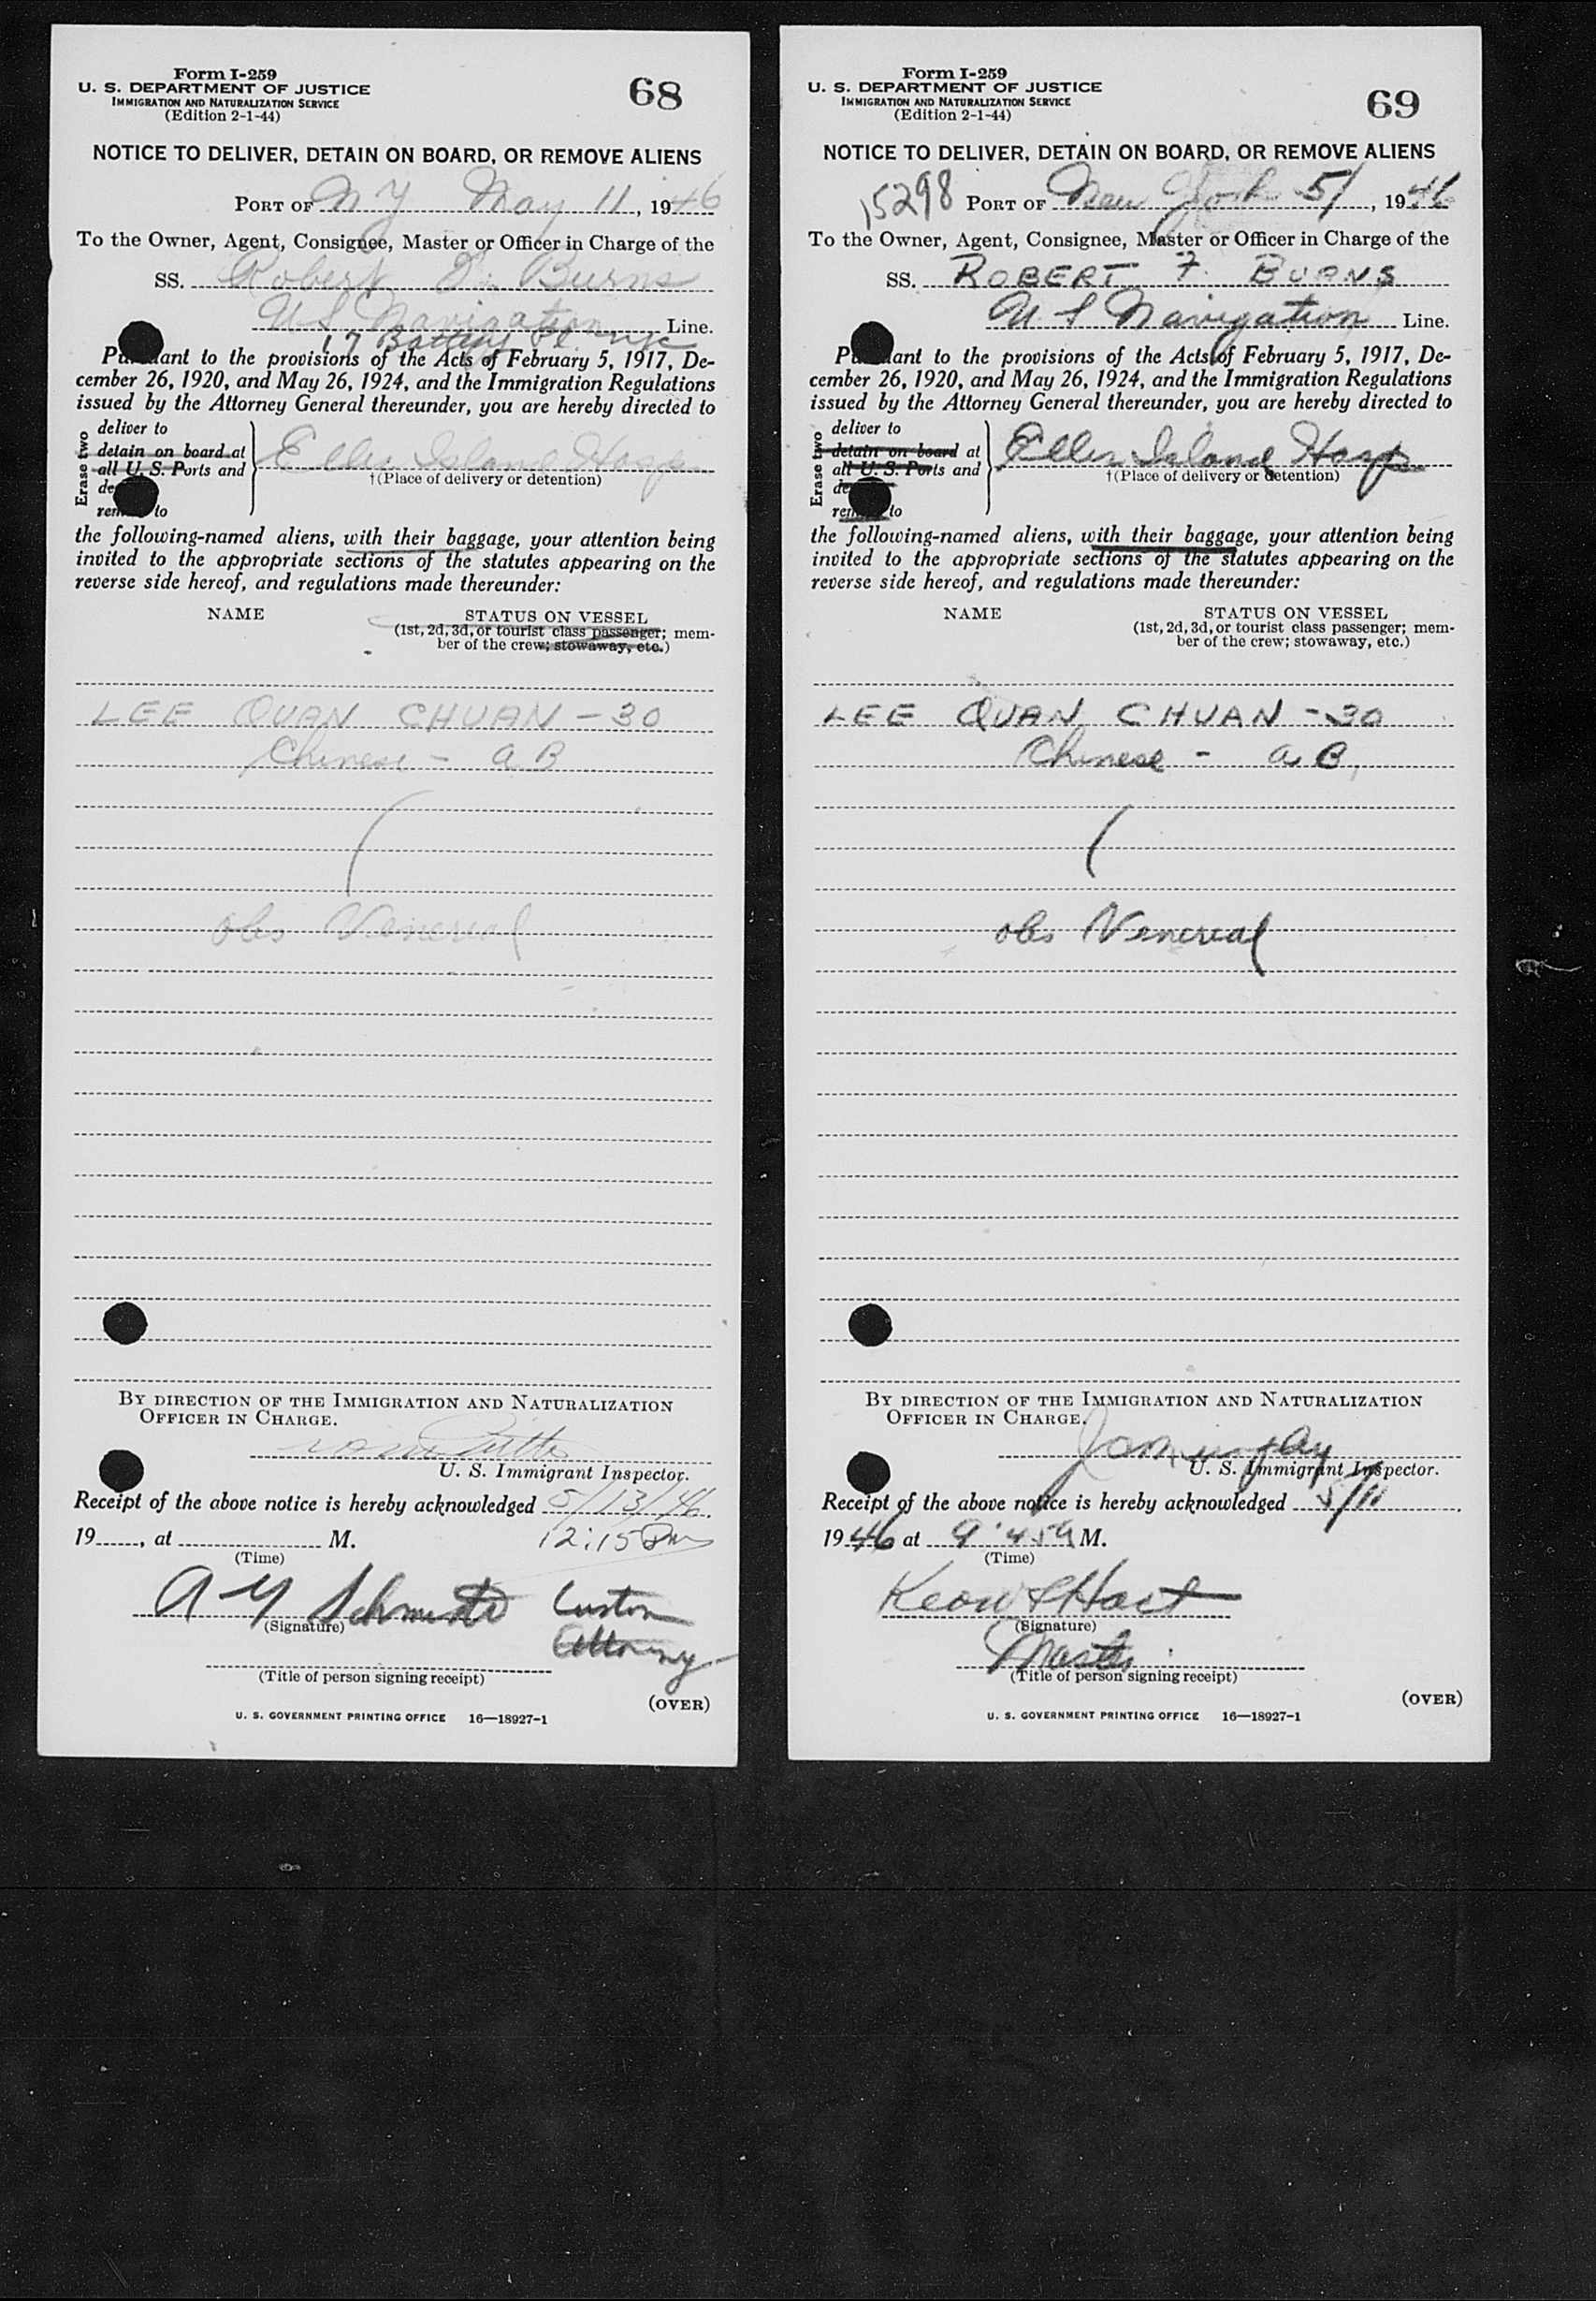 Form I-259
U. S. DEPARTMENT OF JUSTICE
IMMIGRATION AND NATURALIZATION SERVICE
(Edition 2-1-44)
68
NOTICE TO DELIVER, DETAIN ON BOARD, OR REMOVE ALIENS
PORT OF N Y May 11, 1946
To the Owner, Agent, Consignee, Master or Officer in Charge of the
SS. Robert Burns
U S Navigation Line.
17 Battery Pl NYC
Pursuant to the provisions of the Acts of February 5, 1917, De-
cember 26, 1920, and May 26, 1924, and the Immigration Regulations
issued by the Attorney General thereunder, you are hereby directed to
Erase two
deliver to
detain on board at
all U. S. Ports and
de
remove to
Ellis Island Hosp
†(Place of delivery or detention)
the following-named aliens, with their baggage, your attention being
invited to the appropriate sections of the statutes appearing on the
reverse side hereof, and regulations made thereunder:
NAME STATUS ON VESSEL
(1st, 2d, 3d, or tourist class passenger; mem-
ber of the crew; stowaway, etc.)
LEE QUAN CHUAN - 30
Chinese - A B
obs Venereal
BY DIRECTION OF THE IMMIGRATION AND NATURALIZATION
OFFICER IN CHARGE.
U. S. Immigrant Inspector.
Receipt of the above notice is hereby acknowledged 5/13/46.
19......, at M. 12:15 Pm
(Time)
A Y Schmidt Custom
(Signature)
Attorney
(Title of person signing receipt)
(OVER)
U. S. GOVERNMENT PRINTING OFFICE 16—18927-1
Form I-259
U. S. DEPARTMENT OF JUSTICE
IMMIGRATION AND NATURALIZATION SERVICE
(Edition 2-1-44)
69
NOTICE TO DELIVER, DETAIN ON BOARD, OR REMOVE ALIENS
15298 PORT OF New York 5/, 1946
To the Owner, Agent, Consignee, Master or Officer in Charge of the
SS. ROBERT F. BURNS
U S Navigation Line.
Pursuant to the provisions of the Acts of February 5, 1917, De-
cember 26, 1920, and May 26, 1924, and the Immigration Regulations
issued by the Attorney General thereunder, you are hereby directed to
Erase two
deliver to
detain on board at
all U. S. Ports and
de
remove to
Ellis Island Hosp
†(Place of delivery or detention)
the following-named aliens, with their baggage, your attention being
invited to the appropriate sections of the statutes appearing on the
reverse side hereof, and regulations made thereunder:
NAME STATUS ON VESSEL
(1st, 2d, 3d, or tourist class passenger; mem-
ber of the crew; stowaway, etc.)
LEE QUAN CHUAN - 30
Chinese - a B,
obs Venereal
BY DIRECTION OF THE IMMIGRATION AND NATURALIZATION
OFFICER IN CHARGE.
U. S. Immigrant Inspector.
Receipt of the above notice is hereby acknowledged 5/11.
1946 at 9:45 A M.
(Time)
(Signature)
Master
(Title of person signing receipt)
(OVER)
U. S. GOVERNMENT PRINTING OFFICE 16—18927-1